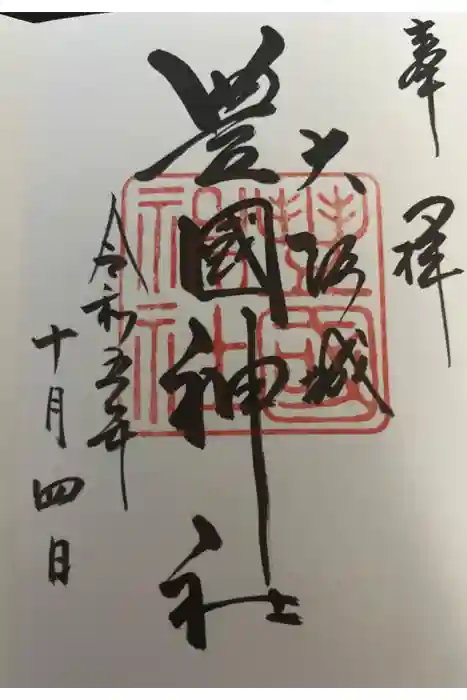 奉拝
大阪城
豊國神社
令和五年
十月四日
豊國神社